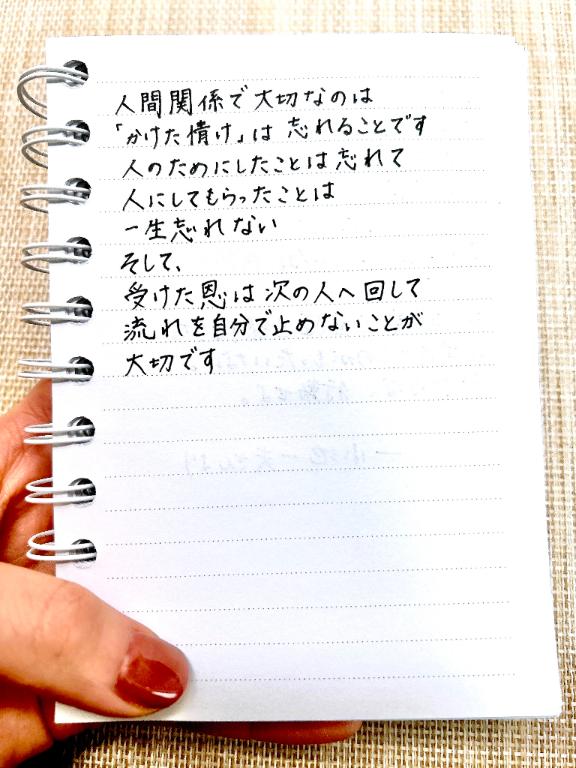 人間関係で大切なのは
「かけた情け」は忘れることです
人のためにしたことは忘れて
人にしてもらったことは
一生忘れない
そして、
受けた恩は次の人へ回して
流れを自分で止めないことが
大切です